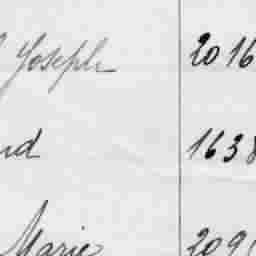 Joseph 2016
nd 1638
Marie 209